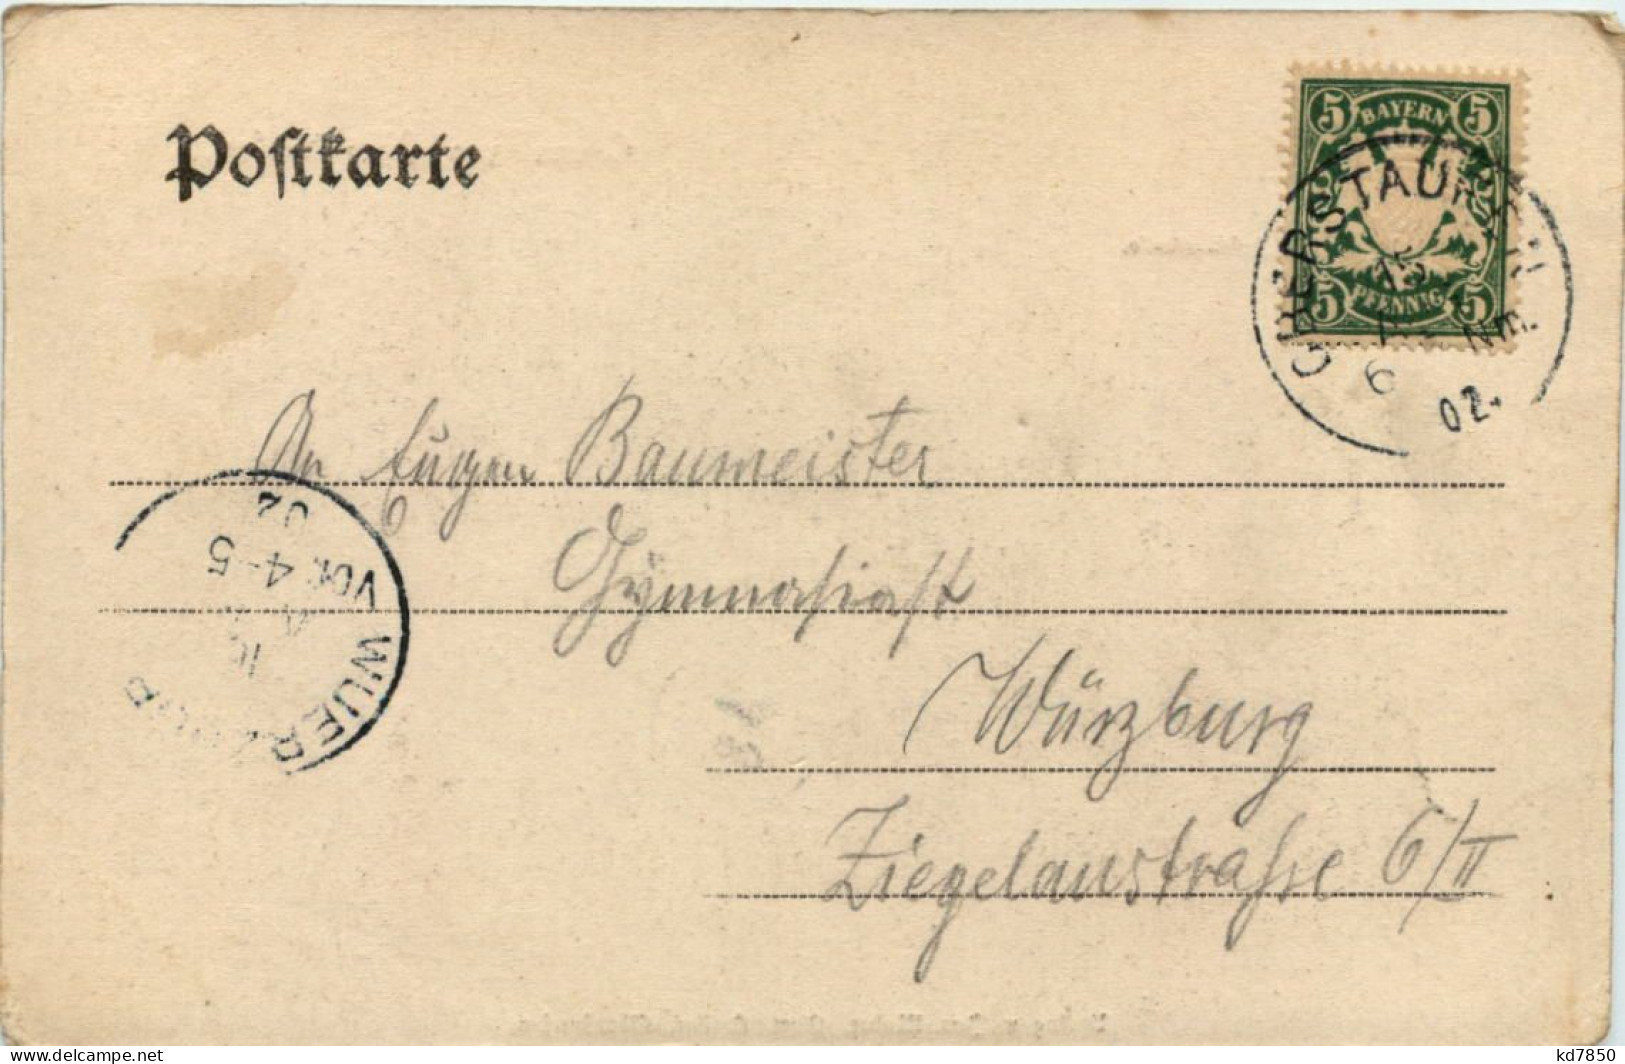 Postkarte
5 BAYERN 5
5 PFENNIG 5
OBERSTAUFEN
15
6 Nm.
02.
An Eugen Baumeister
Gymnasiast
Würzburg
Ziegelaustraße 6/II
WUERZBURG
VOR. 4-5
02
kd7850